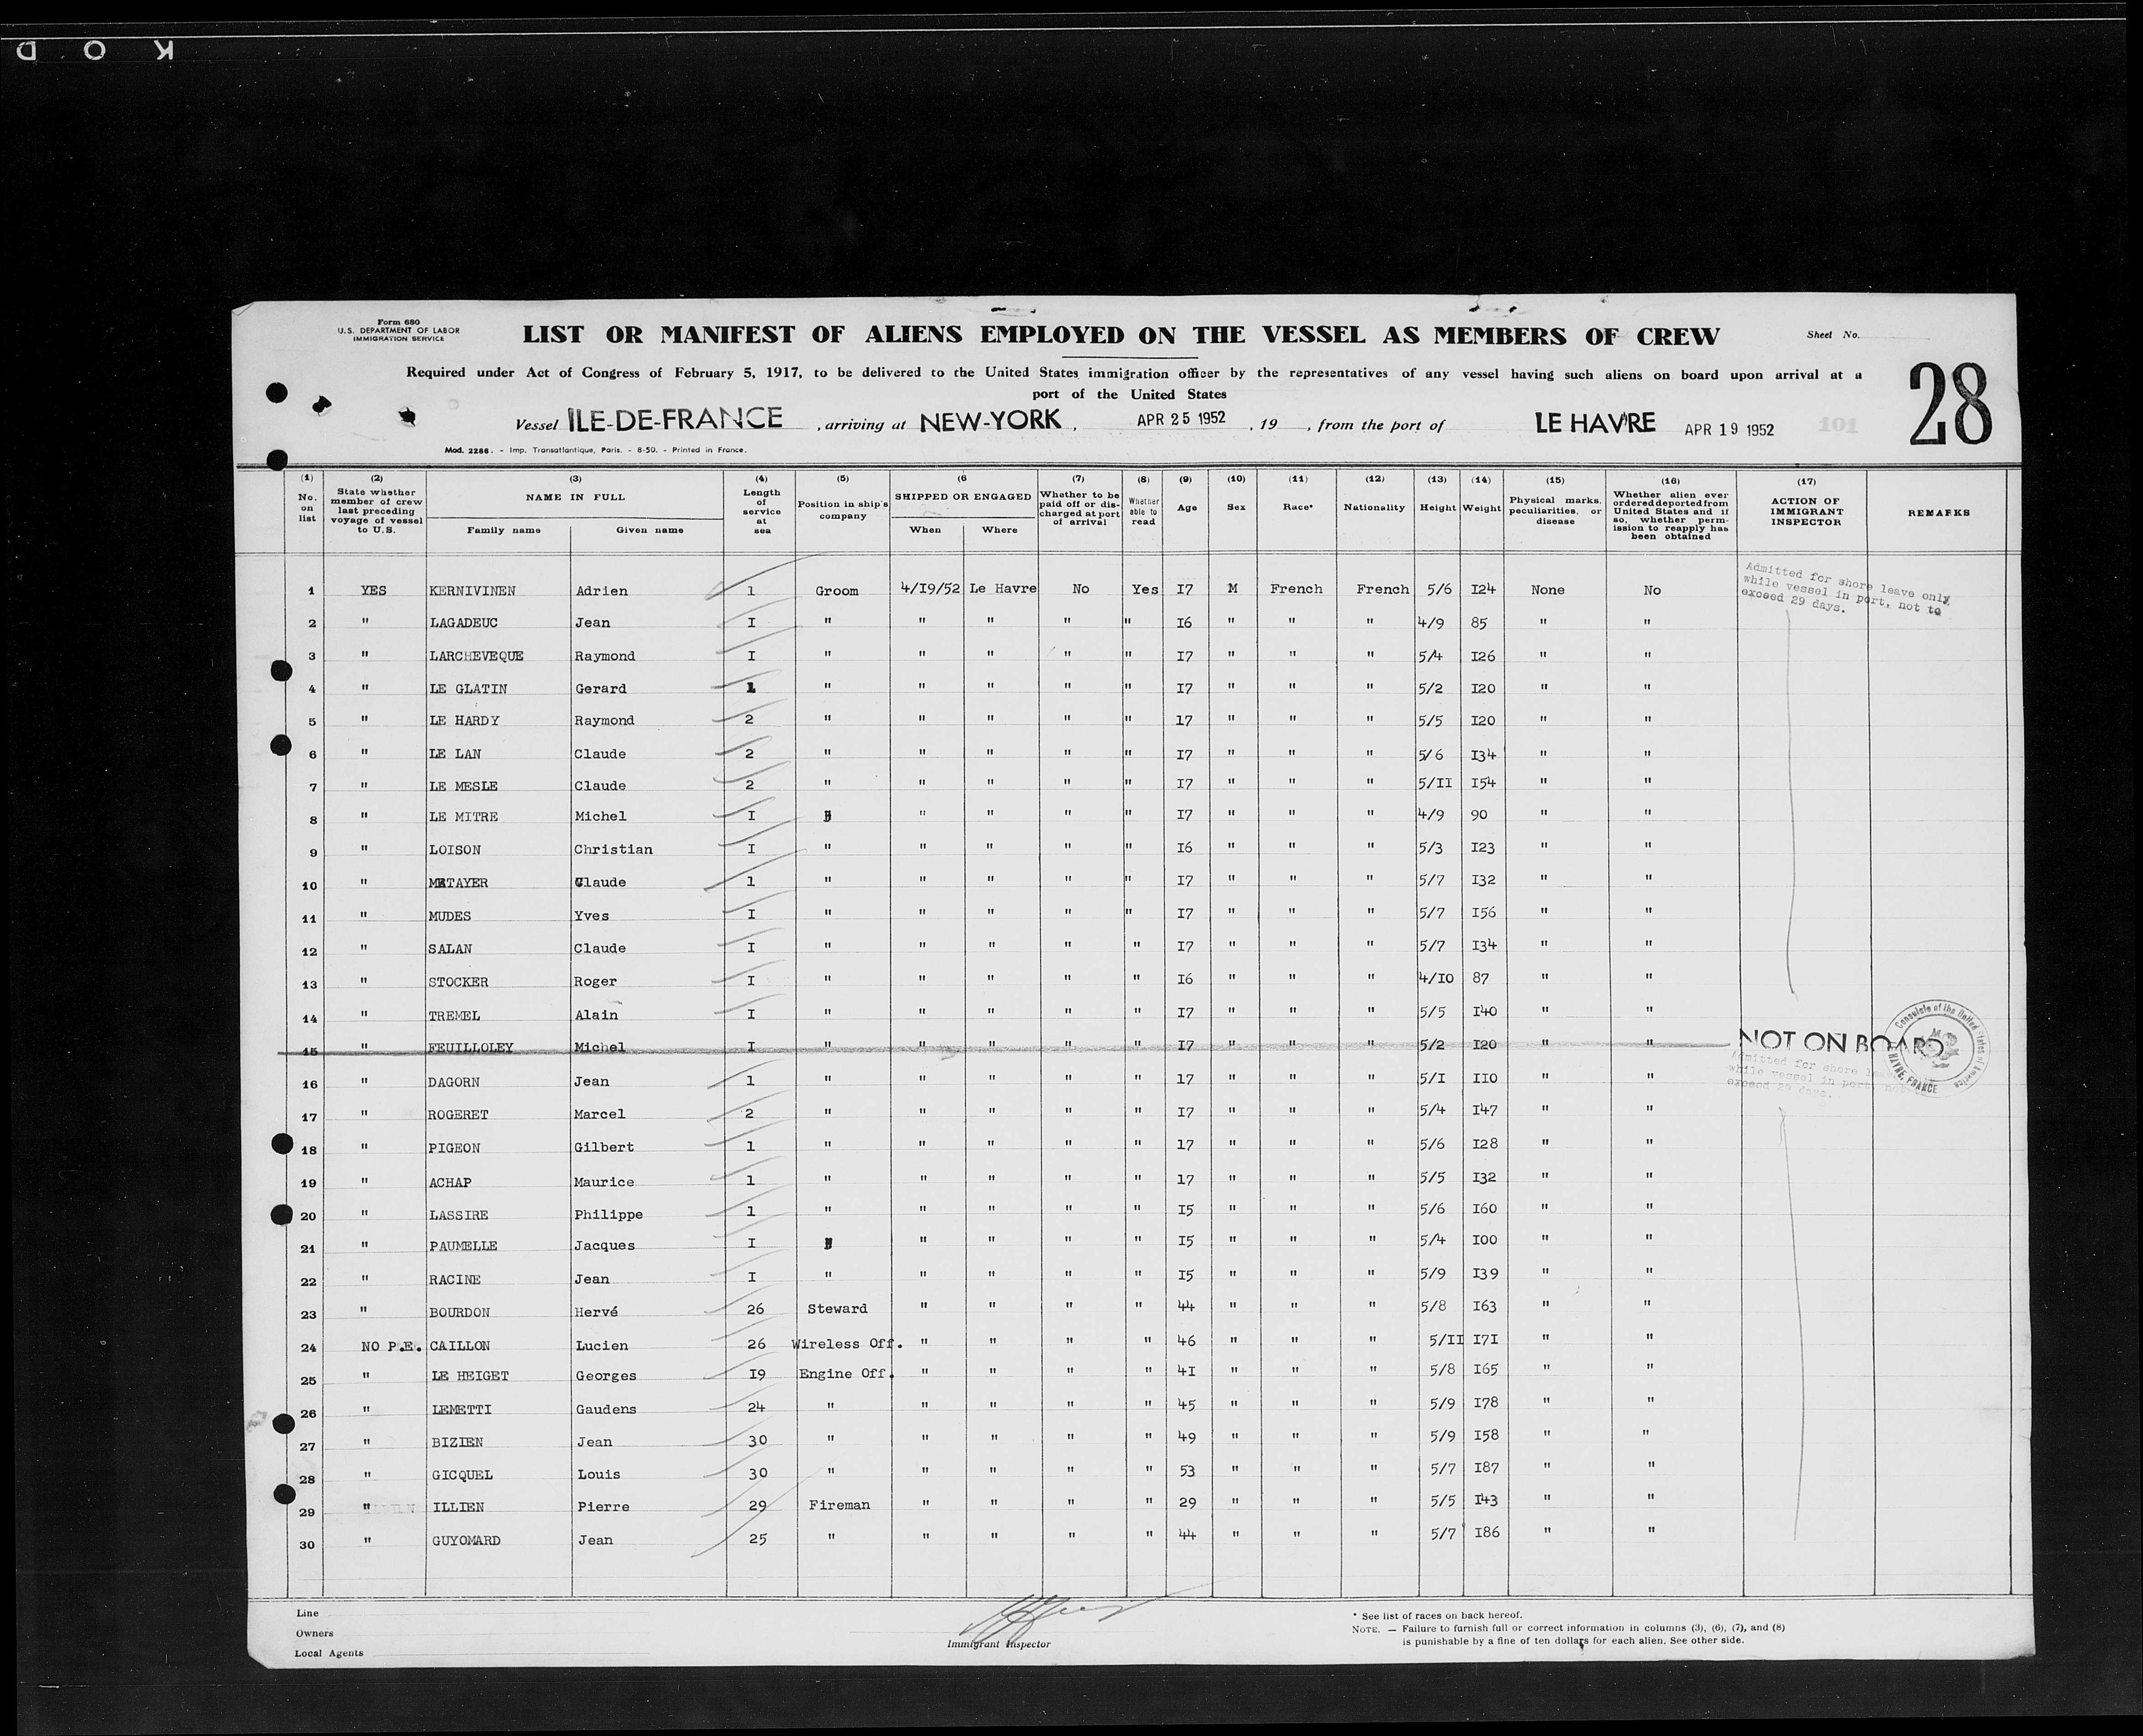 K O D
Form 680
U.S. DEPARTMENT OF LABOR
IMMIGRATION SERVICE
LIST OR MANIFEST OF ALIENS EMPLOYED ON THE VESSEL AS MEMBERS OF CREW
Sheet No.
Required under Act of Congress of February 5, 1917, to be delivered to the United States immigration officer by the representatives of any vessel having such aliens on board upon arrival at a
port of the United States
28
Vessel ILE-DE-FRANCE , arriving at NEW-YORK , APR 25 1952 , 19 , from the port of LE HAVRE APR 19 1952 101
Mod. 2286. - Imp. Transatlantique, Paris. - 8-50. - Printed in France.
(1) No. on list (2) State whether member of crew last preceding voyage of vessel to U.S. (3) NAME IN FULL Family name Given name (4) Length of service at sea (5) Position in ship's company (6) SHIPPED OR ENGAGED When Where (7) Whether to be paid off or discharged at port of arrival (8) Whether able to read (9) Age (10) Sex (11) Race* (12) Nationality (13) Height (14) Weight (15) Physical marks, peculiarities, or disease (16) Whether alien ever ordered deported from United States and if so, whether permission to reapply has been obtained (17) ACTION OF IMMIGRANT INSPECTOR REMARKS
1 YES KERNIVINEN Adrien 1 Groom 4/I9/52 Le Havre No Yes I7 M French French 5/6 I24 None No
Admitted for shore leave only
while vessel in port, not to
exceed 29 days.
2 " LAGADEUC Jean I " " " " " I6 " " " 4/9 85 " "
3 " LARCHEVEQUE Raymond I " " " " " I7 " " " 5/4 I26 " "
4 " LE GLATIN Gerard 1 " " " " " I7 " " " 5/2 I20 " "
5 " LE HARDY Raymond 2 " " " " " 17 " " " 5/5 I20 " "
6 " LE LAN Claude 2 " " " " " I7 " " " 5/6 I34 " "
7 " LE MESLE Claude 2 " " " " " I7 " " " 5/II I54 " "
8 " LE MITRE Michel I " " " " " I7 " " " 4/9 90 " "
9 " LOISON Christian I " " " " " I6 " " " 5/3 I23 " "
10 " METAYER Claude 1 " " " " " I7 " " " 5/7 I32 " "
11 " MUDES Yves I " " " " " I7 " " " 5/7 I56 " "
12 " SALAN Claude I " " " " " I7 " " " 5/7 I34 " "
13 " STOCKER Roger I " " " " " I6 " " " 4/IO 87 " "
14 " TREMEL Alain I " " " " " I7 " " " 5/5 I40 " "
15 " FEUILLOLEY Michel I " " " " " I7 " " " 5/2 I20 " " NOT ON BOARD
Consulate of the United States of America
HAVRE, FRANCE
Admitted for shore
while vessel in port, not
exceed 29 days.
16 " DAGORN Jean 1 " " " " " 17 " " " 5/I II0 " "
17 " ROGERET Marcel 2 " " " " " I7 " " " 5/4 I47 " "
18 " PIGEON Gilbert 1 " " " " " 17 " " " 5/6 I28 " "
19 " ACHAP Maurice 1 " " " " " 17 " " " 5/5 I32 " "
20 " LASSIRE Philippe 1 " " " " " I5 " " " 5/6 I60 " "
21 " PAUMELLE Jacques I " " " " " I5 " " " 5/4 I00 " "
22 " RACINE Jean I " " " " " I5 " " " 5/9 I39 " "
23 " BOURDON Hervé 26 Steward " " " " 44 " " " 5/8 I63 " "
24 NO P.E. CAILLON Lucien 26 Wireless Off. " " " " 46 " " " 5/II I7I " "
25 " LE HEIGET Georges I9 Engine Off. " " " " 4I " " " 5/8 I65 " "
26 " LEMETTI Gaudens 24 " " " " " 45 " " " 5/9 I78 " "
27 " BIZIEN Jean 30 " " " " " 49 " " " 5/9 I58 " "
28 " GICQUEL Louis 30 " " " " " 53 " " " 5/7 I87 " "
29 " ILLIEN Pierre 29 Fireman " " " " 29 " " " 5/5 I43 " "
30 " GUYOMARD Jean 25 " " " " " 44 " " " 5/7 I86 " "
Line
Owners
Local Agents
Immigrant Inspector
* See list of races on back hereof.
NOTE. — Failure to furnish full or correct information in columns (3), (6), (7), and (8)
is punishable by a fine of ten dollars for each alien. See other side.